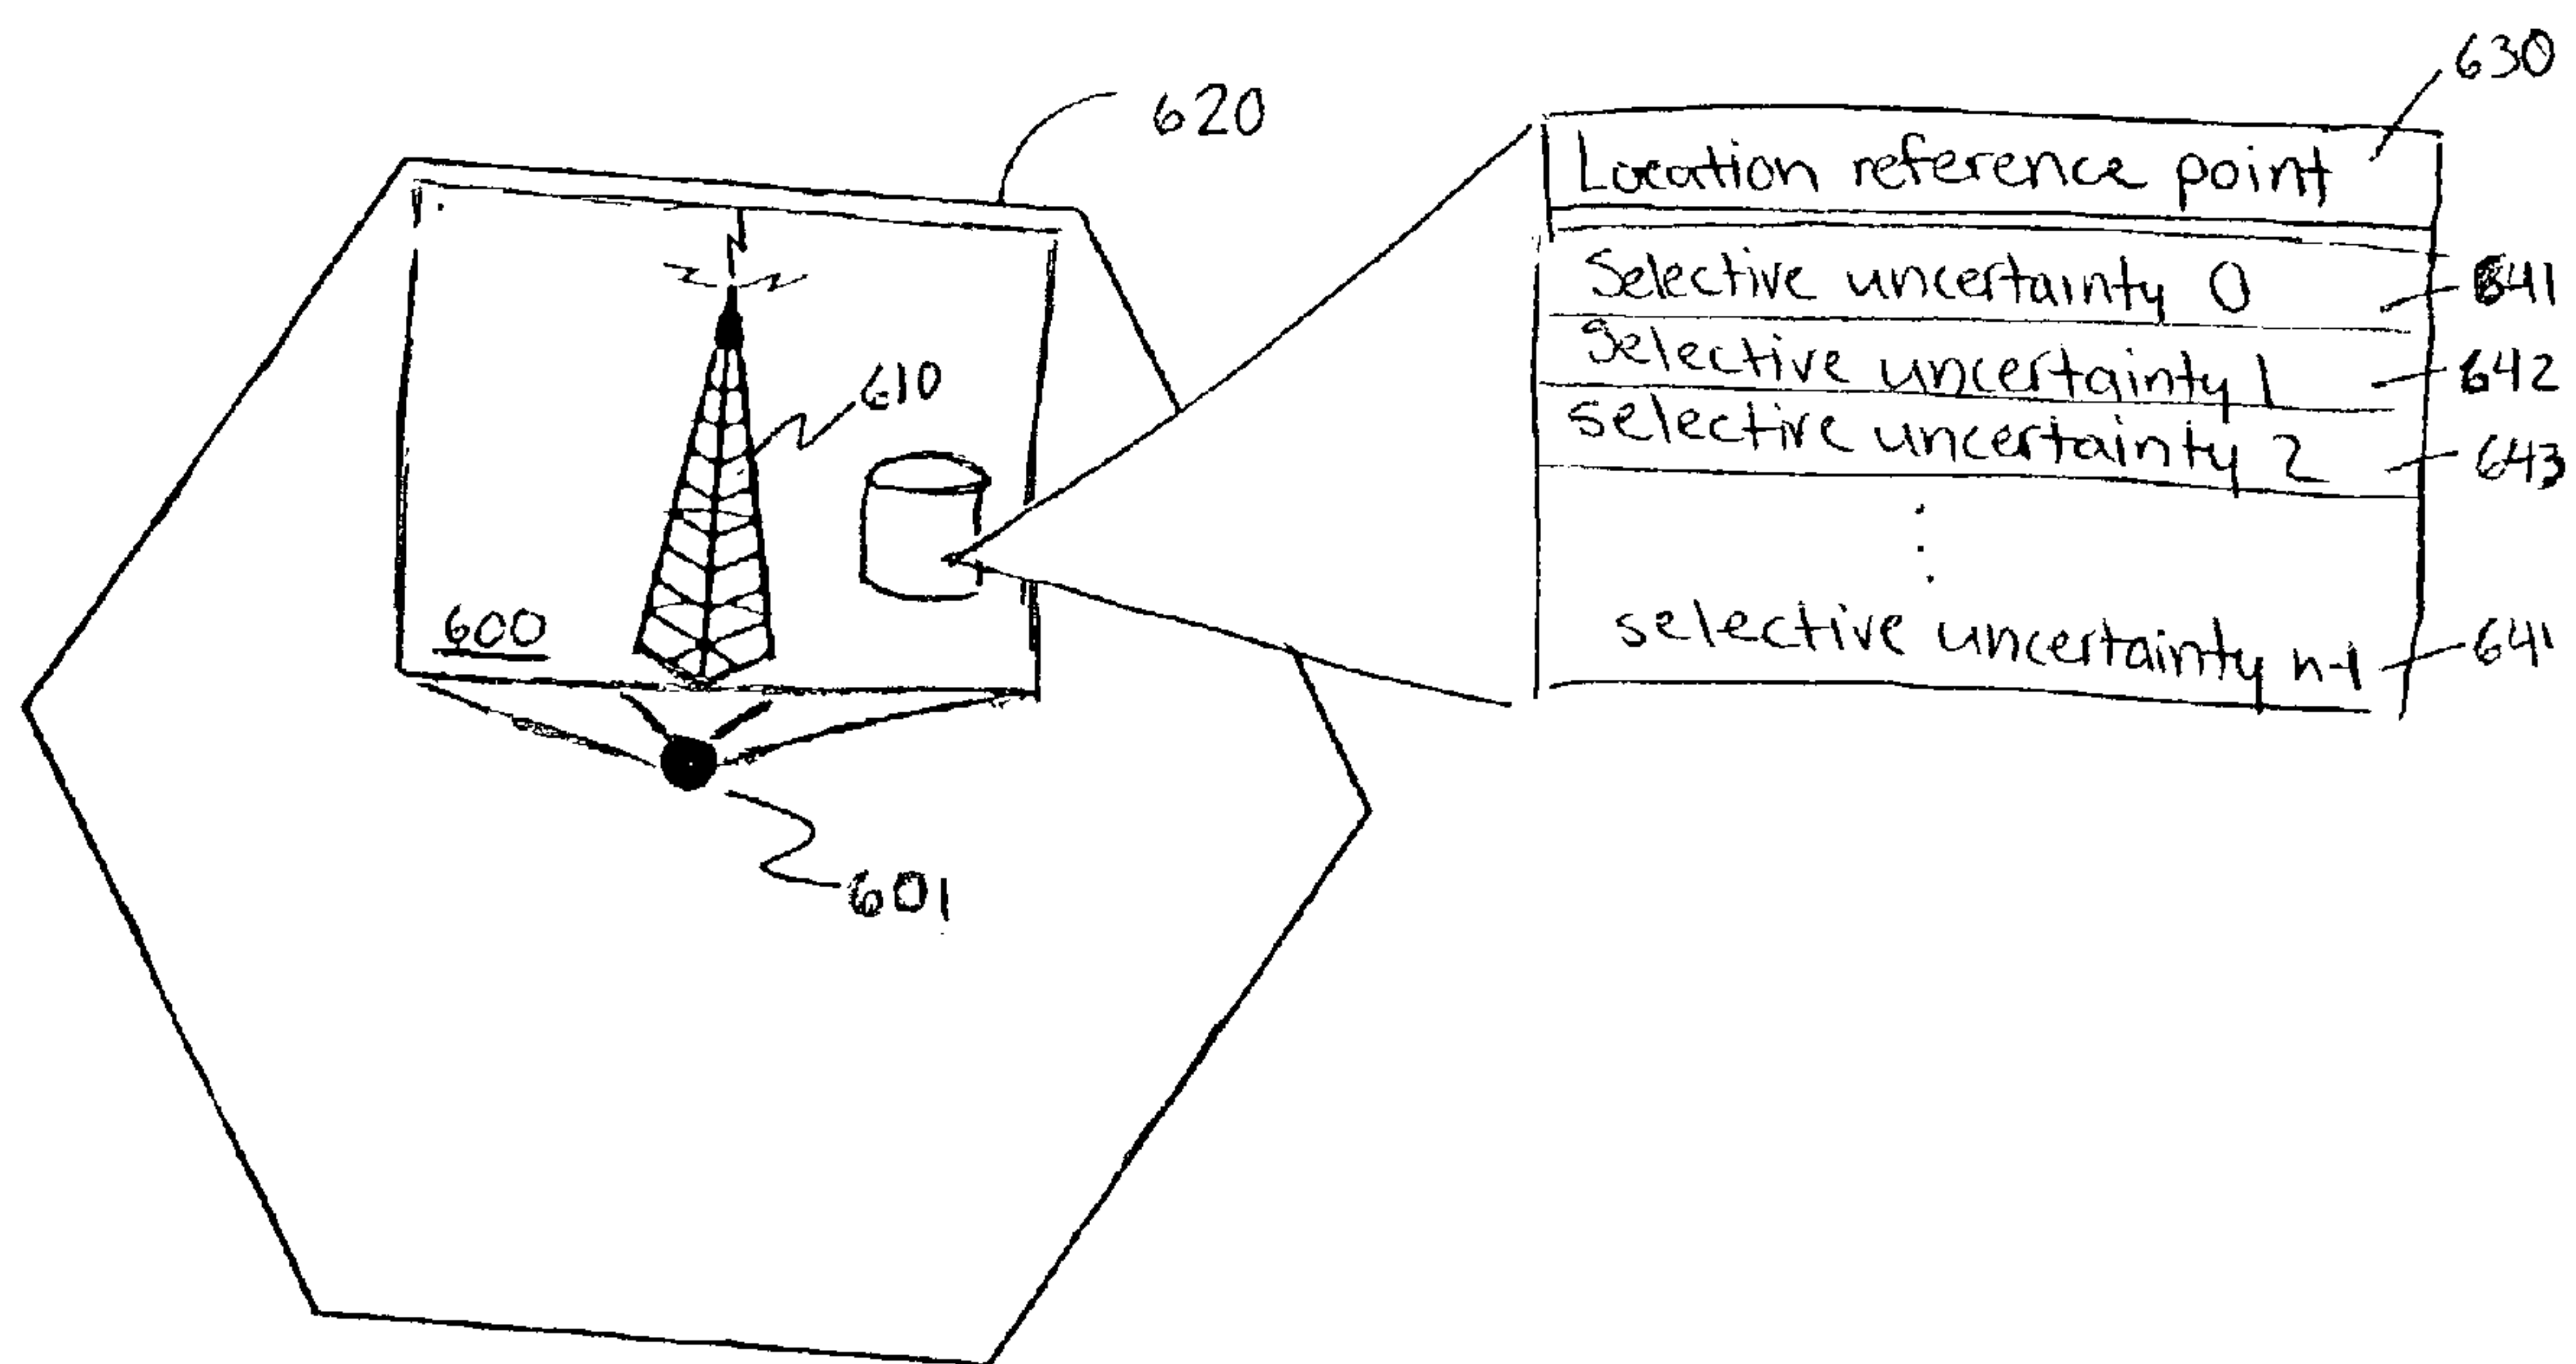 630
620
Location reference point
Selective uncertainty 0
641
Selective uncertainty 1
642
selective uncertainty 2
643
610
600
selective uncertainty n-1
641
601